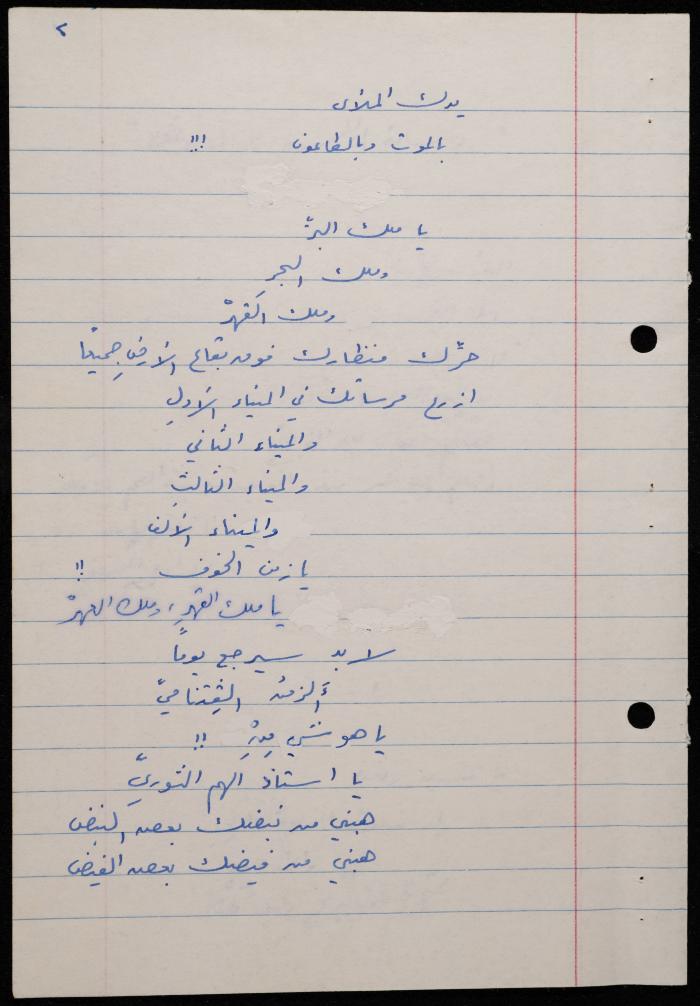 ٢
يدك الملأى
بالموت وبالطاعون !!!
يا ملك البرّ
وملك البحرِ
وملك القهرْ
حرِّك منظارك فوق بقاع الأرضِ جميعًا
ازرع مرساتك في الميناء الأولِ
والميناء الثاني
والميناء الثالثِ
والميناء الألف
يا زمن الخوف !!
يا ملك القهرِ، وملك العهرْ
لا بد سيرجع يوماً
ألزمن الفيتناميّ
يا هوشي مِنْهِ !!
يا استاذ الهم الثوريِّ
هبني من نبضك بعض النبض
هبني من فيضك بعض الفيض